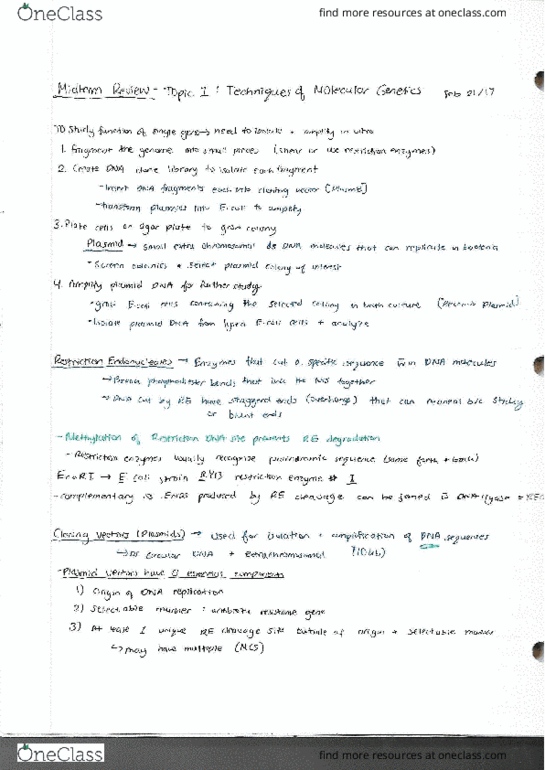 OneClass
find more resources at oneclass.com
Midterm Review - Topic 1 : Techniques of Molecular Genetics Feb 21/17
TO Study function of single gene → need to isolate + amplify in vitro
1. Fragment the genome into small pieces (shear or use restriction enzymes)
2. Create DNA clone library to isolate each fragment
- Insert DNA fragments each into cloning vector (plasmid)
- transform plasmids into E.coli to amplify
3. Plate cells on agar plate to grow colony
Plasmid → small extra chromosomal ds DNA molecules that can replicate in bacteria
- Screen colonies + select plasmid colony of interest
4. Amplify plasmid DNA for further study
- grow E.coli cells containing the selected colony in broth culture plasmid)
- Isolate plasmid DNA from lysed E.coli cells + analyze
Restriction Endonucleases → Enzymes that cut a specific sequence w/in DNA molecules
↳ Break phosphodiester bonds that link the together
↳ DNA cut by RE have staggered ends (overhangs) that can reanneal b/c sticky
or blunt ends
- Methylation of Restriction DNA site prevents RE degradation
- Restriction enzymes usually recognize palindromic sequence (same forth + back)
EcoRI → E coli strain RY13 restriction enzyme # I
- complementary ss ends produced by RE cleavage can be joined DNA ligase +
Cloning Vectors (Plasmids) → used for isolation + amplification of DNA sequences
↳ ds circular DNA + extrachromosomal (10kb)
- Plasmid vectors have 3 essential components
1) Origin of DNA replication
2) Selectable marker : antibiotic resistance gene
3) At least 1 unique RE cleavage site outside of origin + selectable marker
↳ may have multiple (MCS)
OneClass
find more resources at oneclass.com